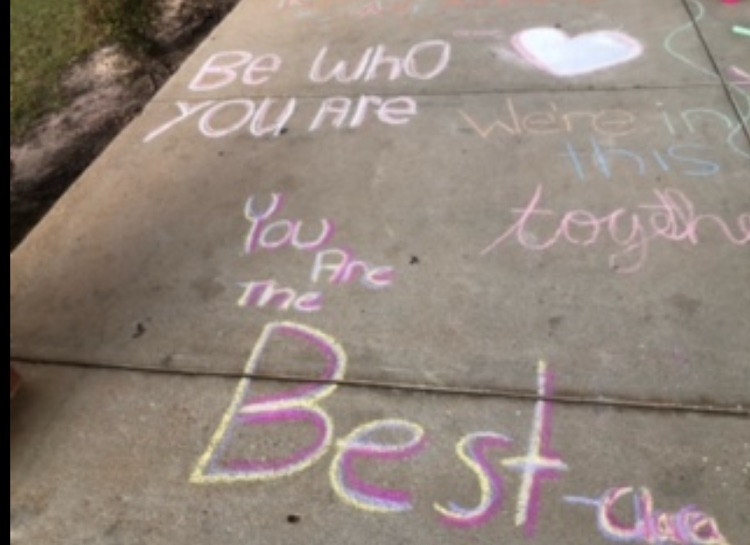 Be Who
You Are
We're in
this
togethe
You
Are
The
Best
-Clara